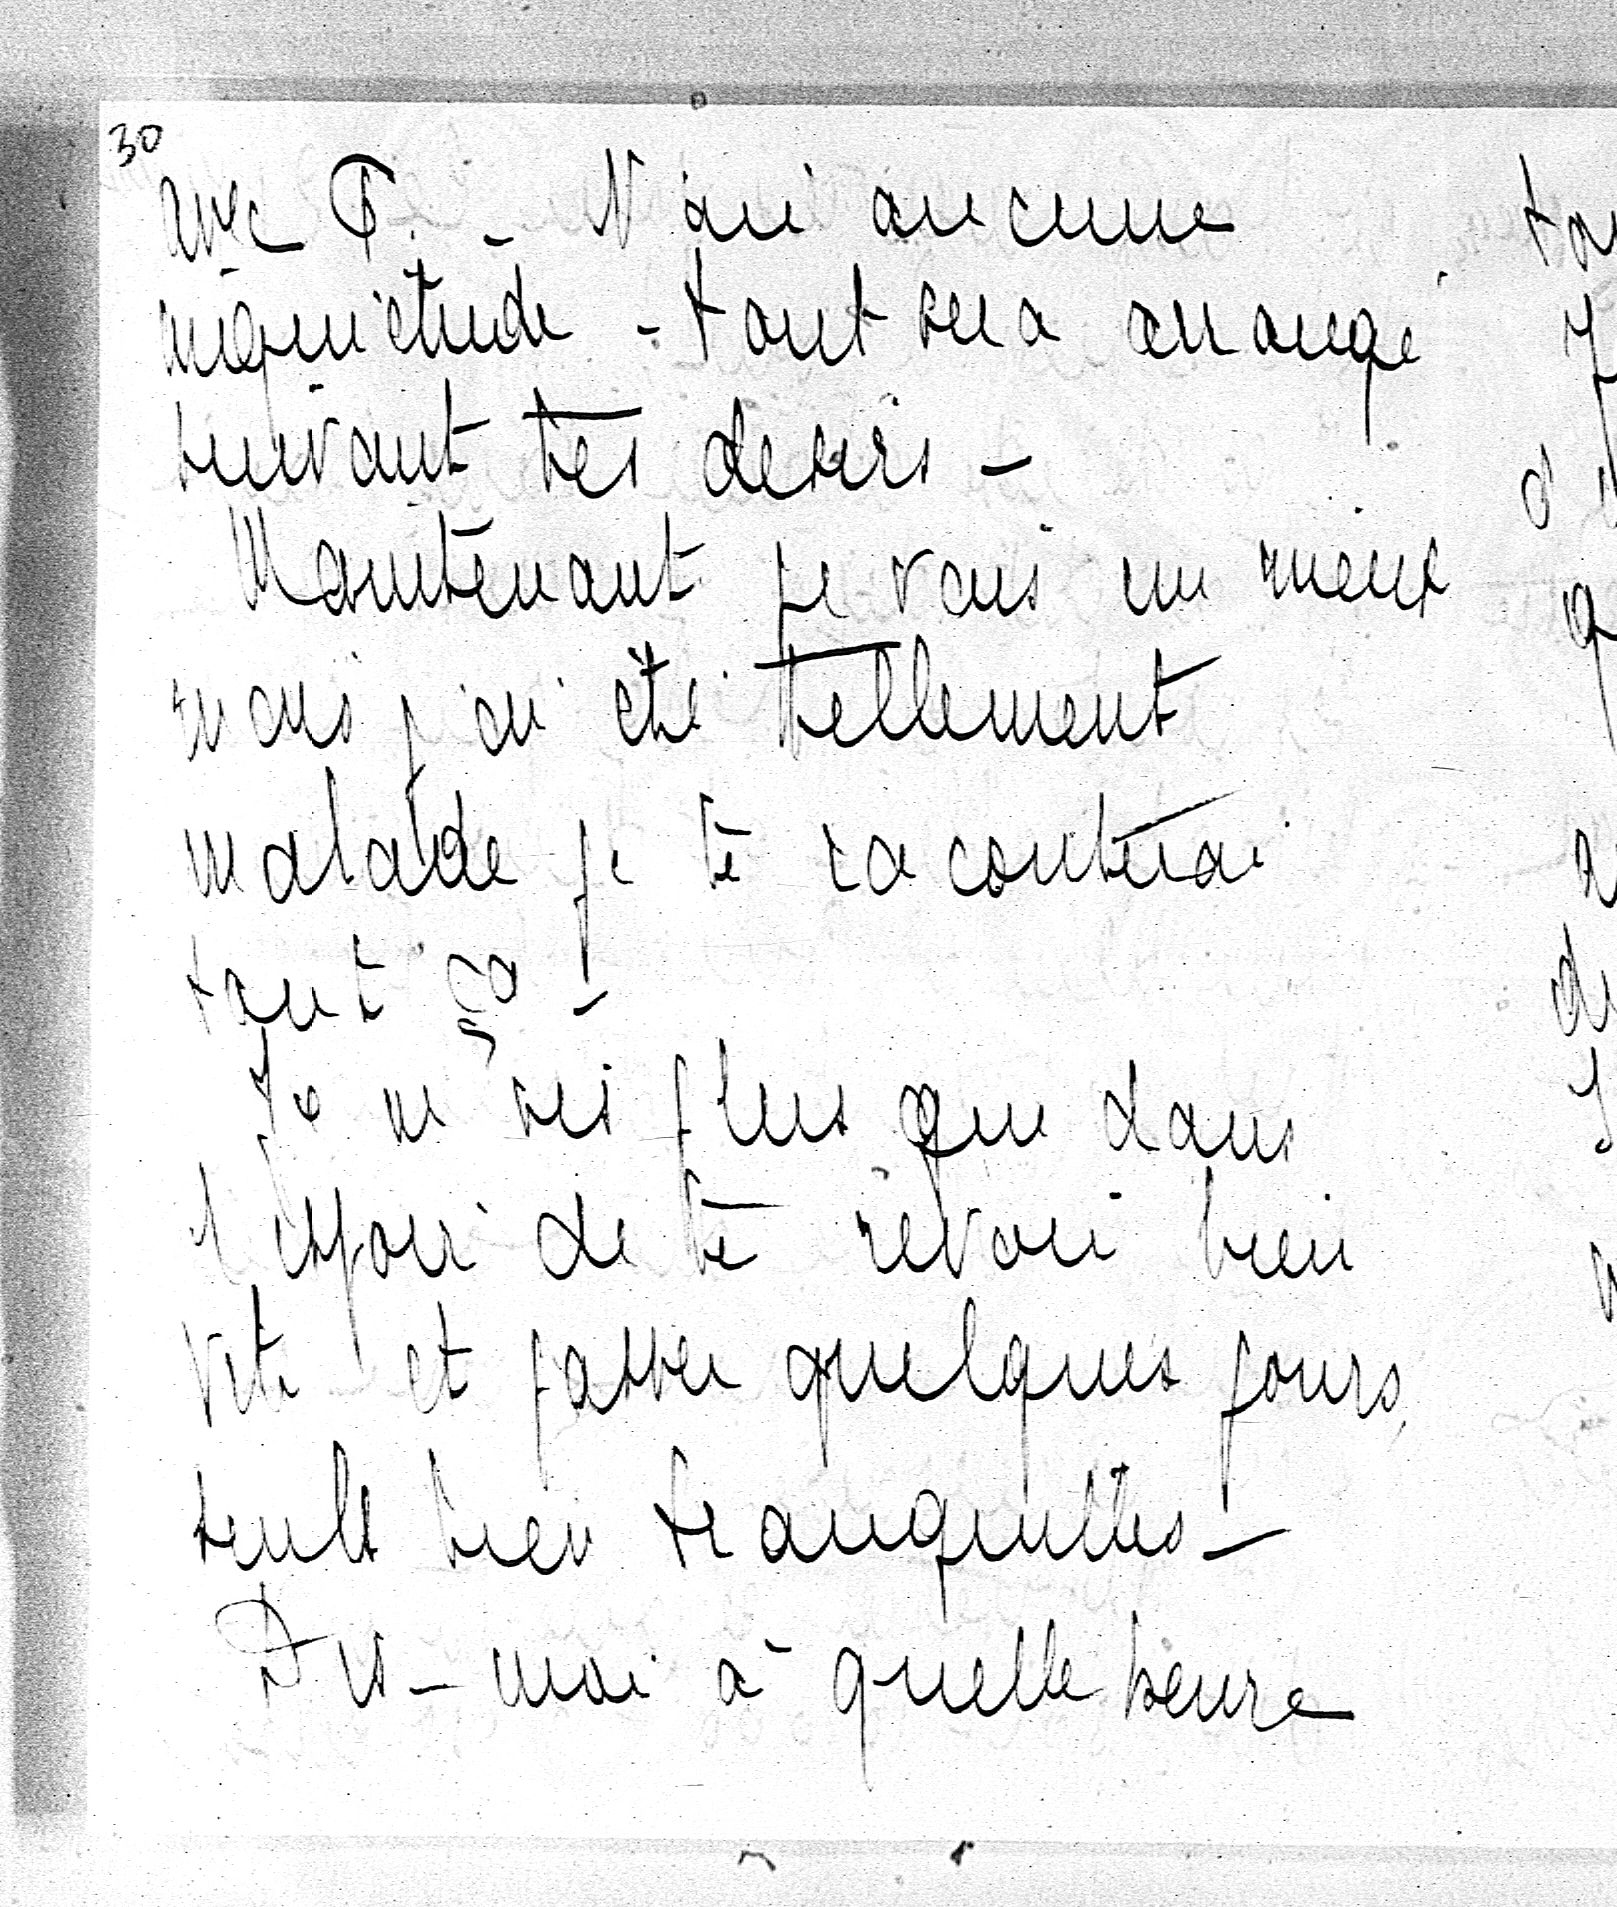 30
avec P. - N'aie aucune
inquiétude - tout sera arrangé
suivant tes désirs -
Maintenant je vais un mieux
mais j'ai été tellement
malade je te raconterai
tout ça -
Je ne vis plus que dans
l'espoir de te revoir bien
vite et passer quelques jours,
seuls bien tranquilles -
Dis-moi à quelle heure